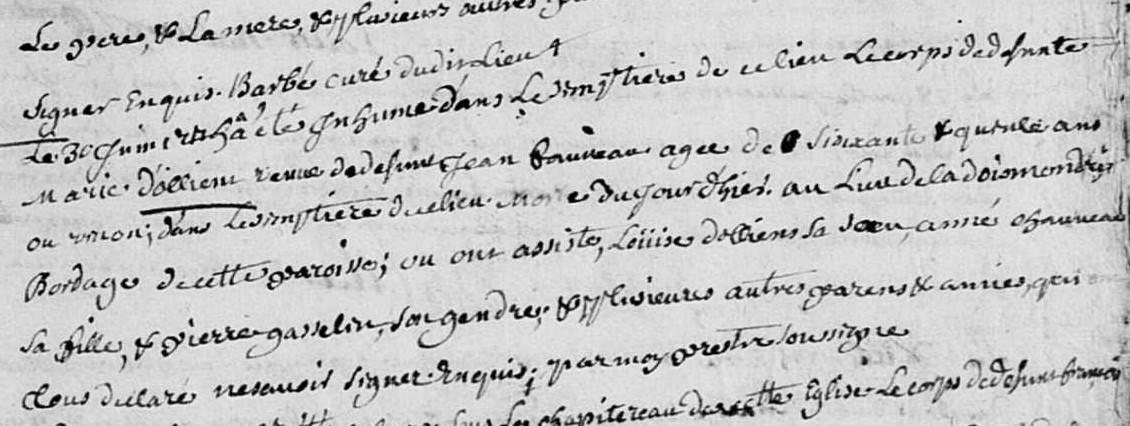 Le pere, & La mere, & plusieurs autres
signer Enquis. Barbé curé dudit Lieu
Le 30 Juin a Esté Inhumé dans Le simptiere de ce lieu Le corps de defunte
Marie d'olliens veuve de defunt Jean Fauveau agee de soixante & quinze ans
ou viron; dans Le simptiere de ce lieu. Morte du Jour d'hier. au Lieu de la
Bordage de cette paroisse; ou ont assisté, Loüise dolliens sa soeur, anne chauveau
sa fille, & pierre gasselin, son gendre; & plusieures autres parens & amies, qui
tous declaré ne savoir signer Enquis; par moy prestre soussigne
chapitereau de cette Eglise Le corps de defunt francois